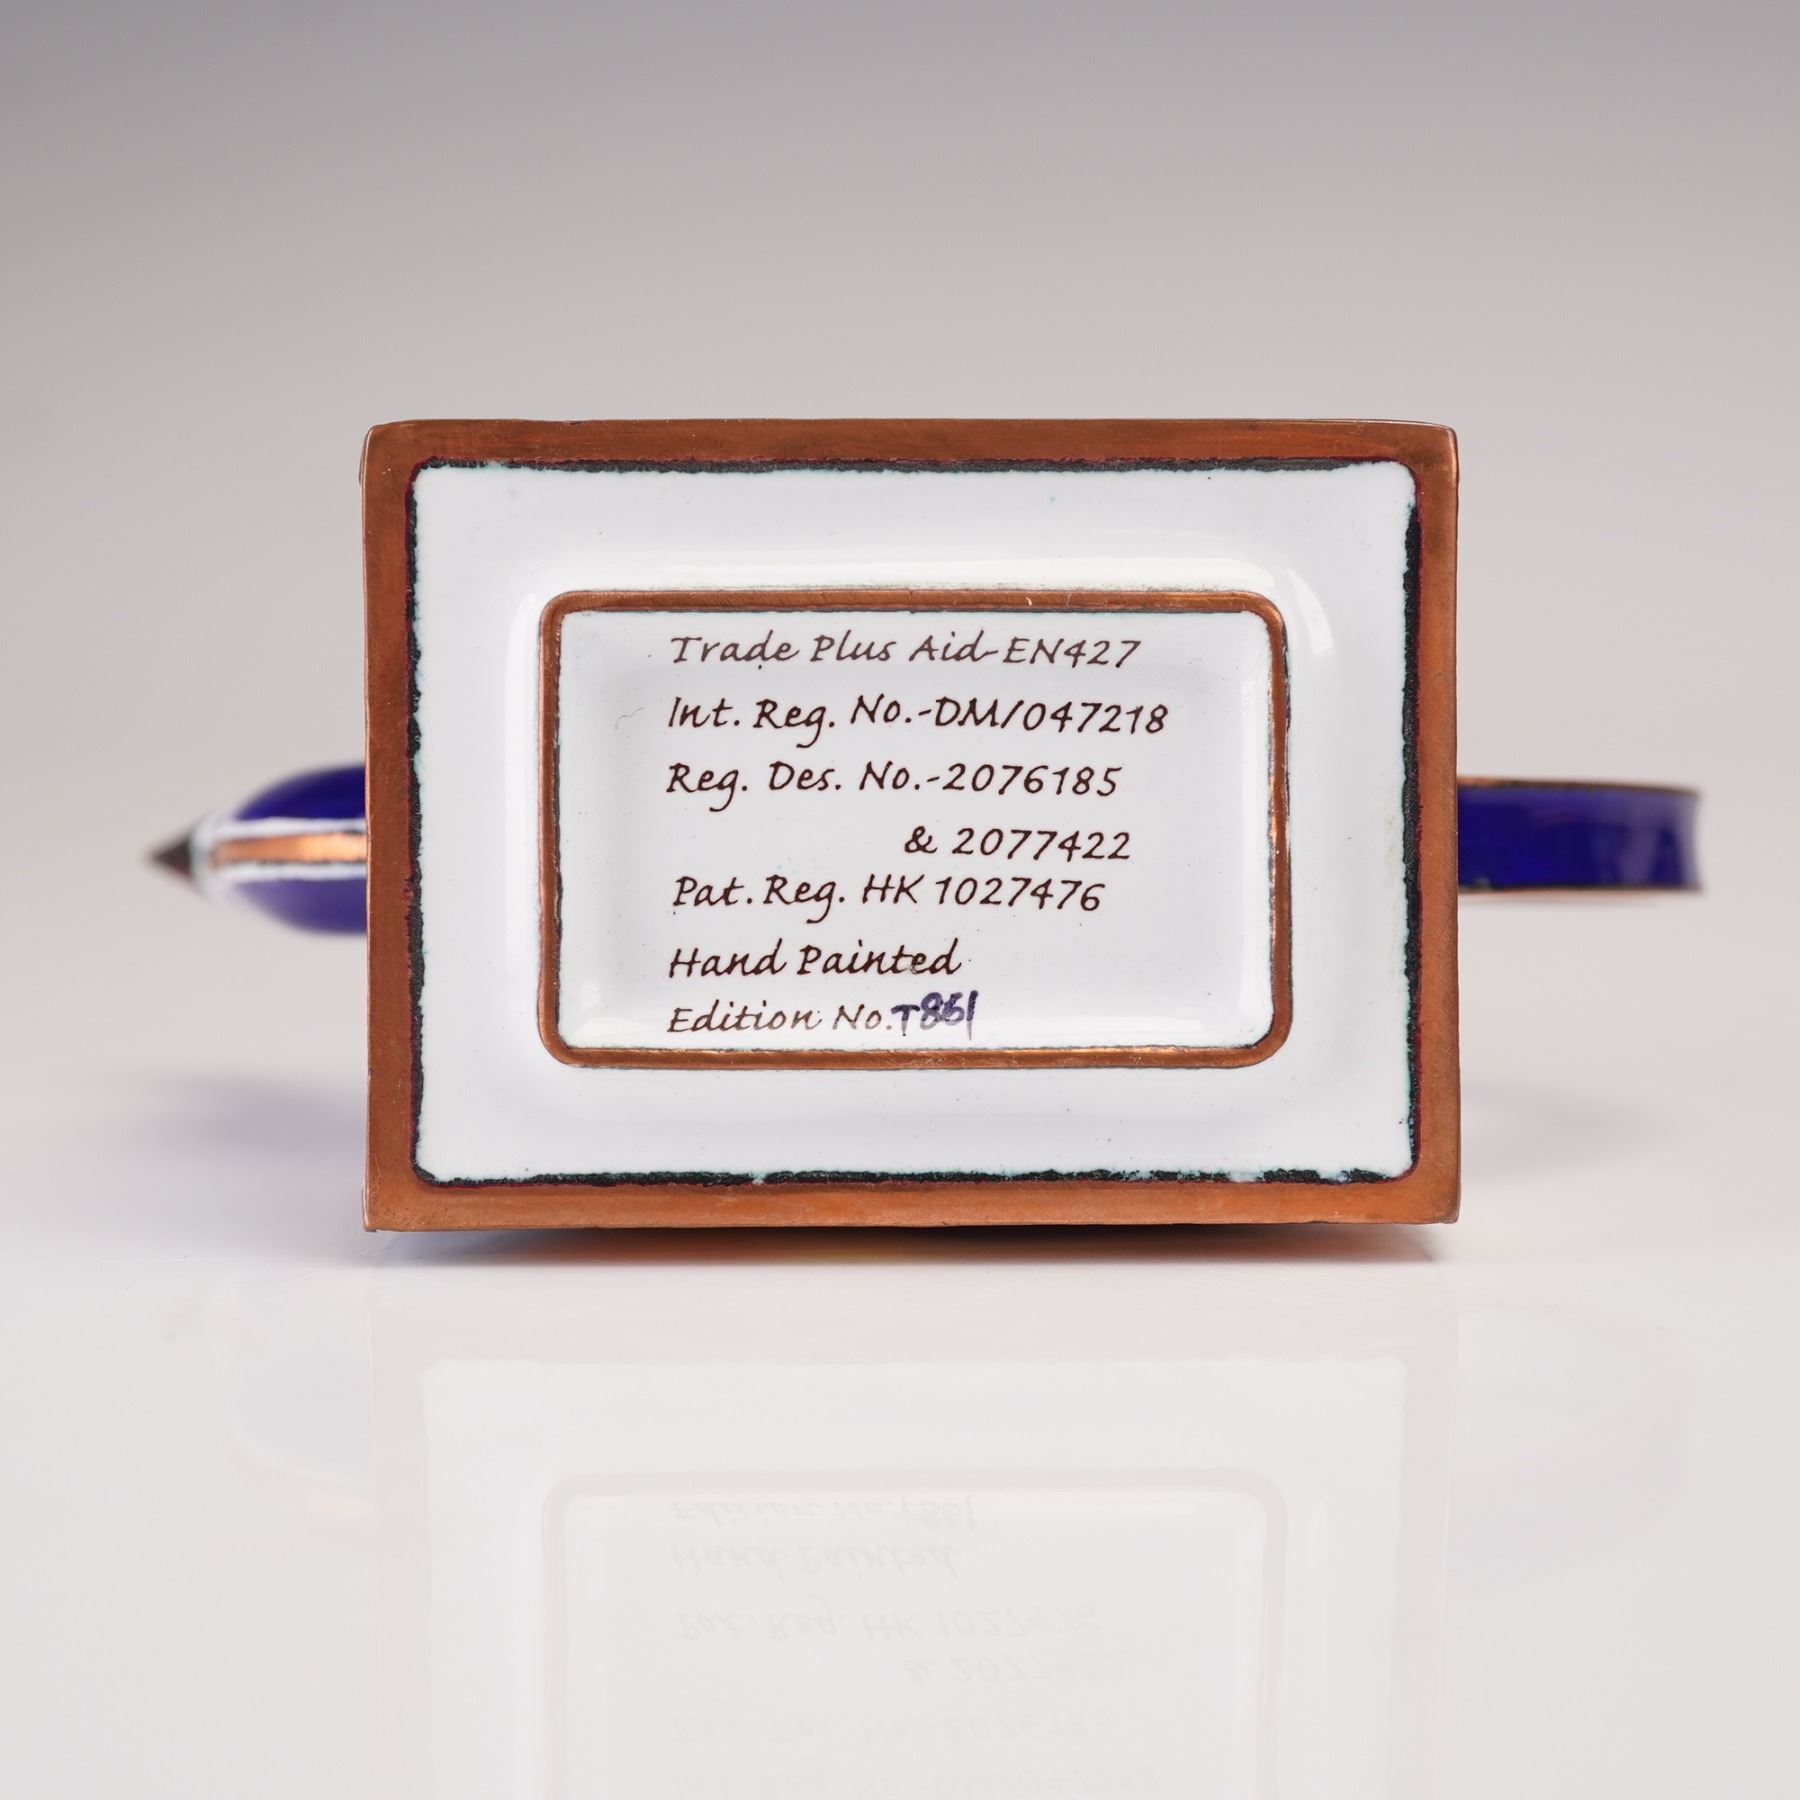 Trade Plus Aid-EN427
Int. Reg. No.-DM/047218
Reg. Des. No.-2076185
& 2077422
Pat. Reg. HK 1027476
Hand Painted
Edition No.T861